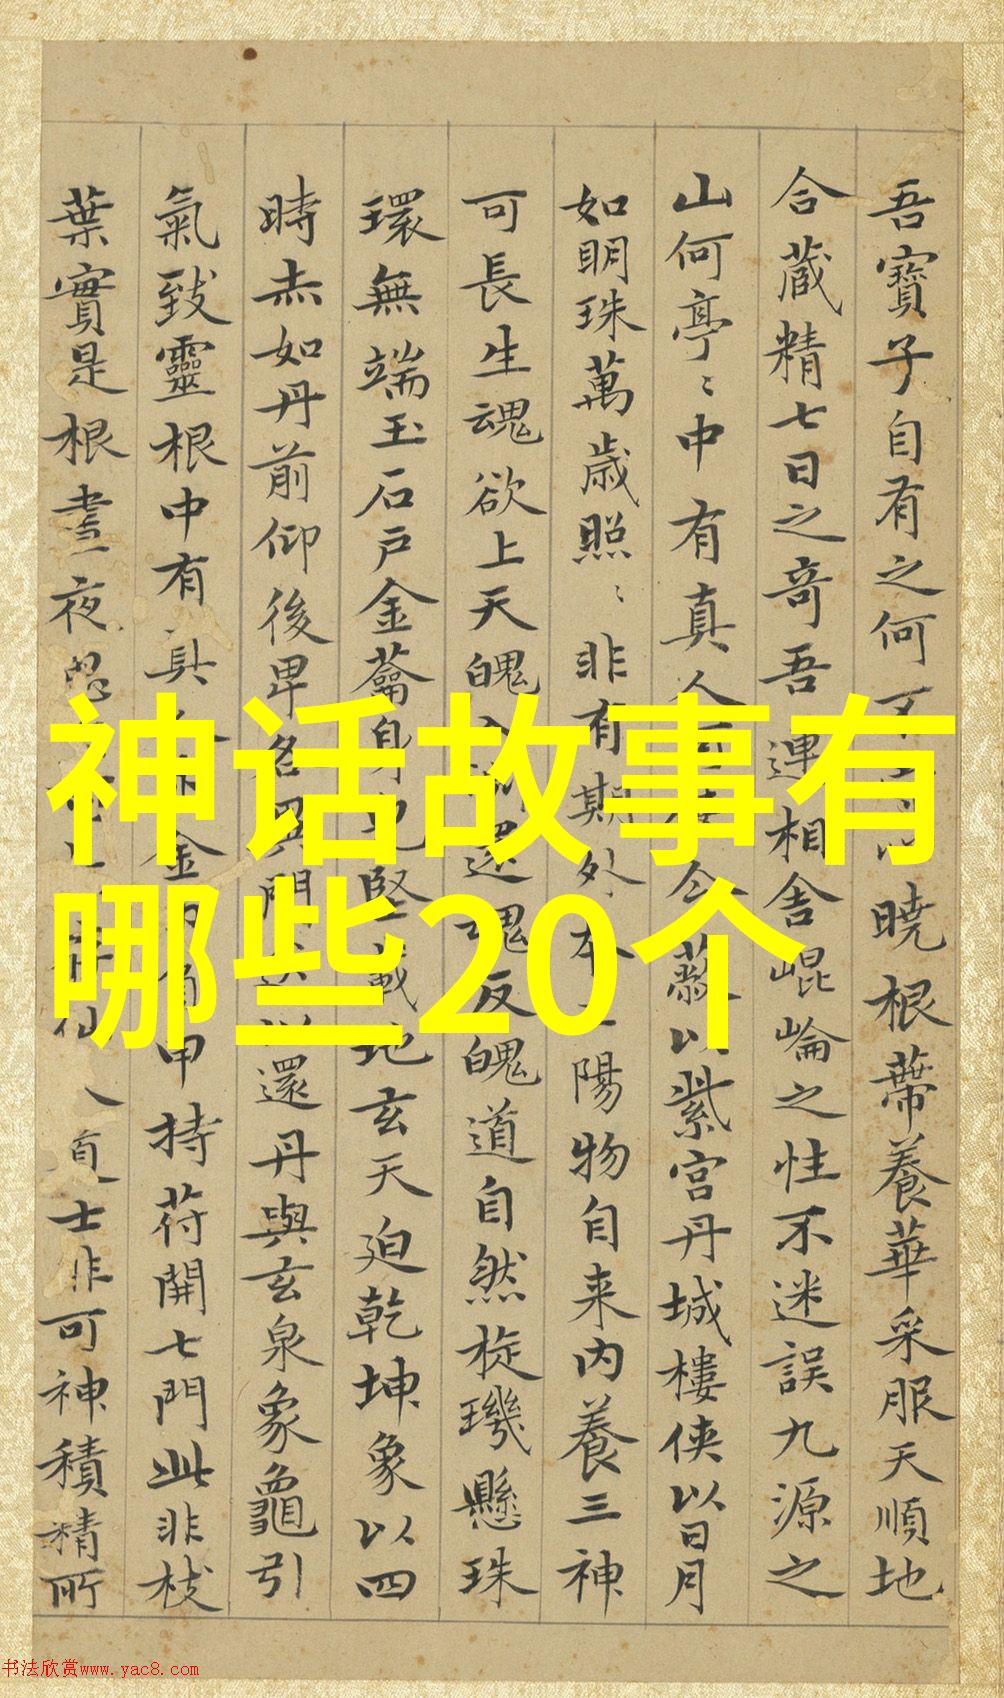 吾寶子自有之何不
曉根蒂養華采服天順地
合藏精七日之奇吾連相舍崐崘之性不迷誤九源之
山何亭〻中有真人
蔡以紫宮丹城樓俠以日月
如明珠萬歲照〻非有期外本
陽物自来内養三神
可長生魂欲上天魄
還魂反魄道自然旋璣懸珠
環無端玉石戶金籥身
堅載地玄天迫乾坤象以四
時赤如丹前仰後卑各異門
以還丹與玄泉象龜引
氣致靈根中有真
金
甲持苻開七門此非枝
葉實是根晝夜思
士非可神積精所
神话故事有
哪些20个
书法欣赏www.yac8.com